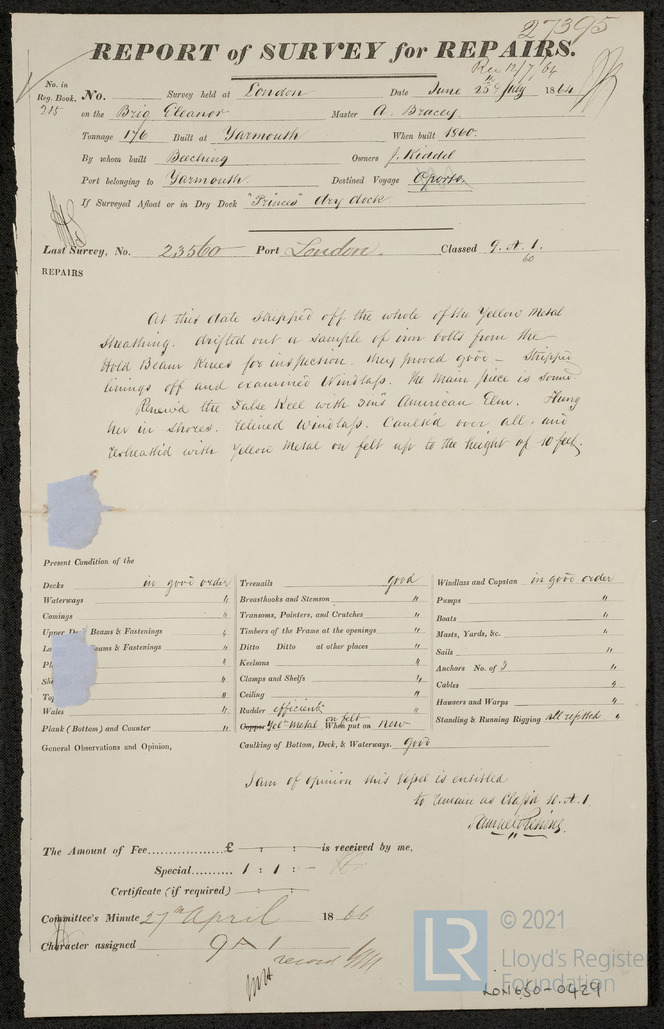 27395
REPORT of SURVEY for REPAIRS.
Rec 12/7/64
No. in Reg. Book. No. Survey held at London Date June 25th July 1864
215 on the Brig Eleanor Master A. Bracey
Tonnage 176 Built at Yarmouth When built 1860.
By whom built Beeching Owners J. Kiddel
Port belonging to Yarmouth Destined Voyage Oporto
If Surveyed Afloat or in Dry Dock "Princes" dry dock
Last Survey, No. 23560 Port London. Classed 9. A. 1.
60
REPAIRS
At this date stripped off the whole of the Yellow Metal
Sheathing. drifted out a sample of iron bolts from the
Hold Beam Knees for inspection. they proved good - Stripped
linings off and examined Windlass. the main piece is sound
Renew'd the False Keel with 3 ins American Elm. Hung
her in Shores. Relined Windlass. Caulk'd over all, and
resheath'd with Yellow Metal on felt up to the height of 10 feet.
Present Condition of the
Decks in good order Treenails good Windlass and Capstan in good order
Waterways " Breasthooks and Stemson " Pumps "
Comings " Transoms, Pointers, and Crutches " Boats "
Upper Deck Beams & Fastenings " Timbers of the Frame at the openings " Masts, Yards, &c. "
Lo Beams & Fastenings " Ditto Ditto at other places " Sails "
Pl " Keelsons " Anchors No. of 3 "
She " Clamps and Shelfs " Cables "
Top " Ceiling " Hawsers and Warps "
Wales " Rudder efficient Standing & Running Rigging all refitted "
Plank (Bottom) and Counter " Copper Yel Metal on felt When put on New
General Observations and Opinion, Caulking of Bottom, Deck, & Waterways. good
I am of opinion this Vessel is entitled
to remain as Class'd 10. A. 1.
The Amount of Fee £ : : is received by me,
Special 1 : 1 : -
Certificate (if required) : :
Committee's Minute 27th April 1866
Character assigned 9 A 1
record
© 2021
LR
Lloyd's Register
Foundation
LON650-0429